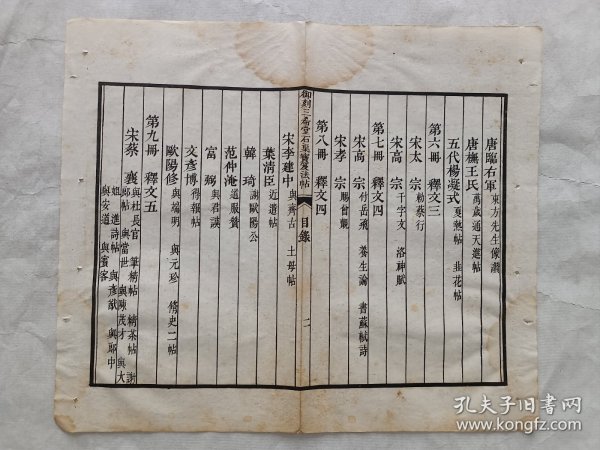 唐臨右軍 東方先生像讚
唐橅王氏 萬歲通天進帖
五代楊凝式 夏熱帖 韭花帖
第六冊 釋文三
宋太宗 勅蔡行
宋高宗 千字文 洛神賦
第七冊 釋文四
宋高宗 付岳飛 養生論 書蘇軾詩
宋孝宗 賜曾覿
第八冊 釋文四
御刻三希堂石渠寶笈法帖 目錄 二
宋李建中 與齊古 土母帖
葉清臣 近遣帖
韓琦 謝歐陽公
范仲淹 道服贊
富弼 與君謨
文彥博 得報帖
歐陽修 與端明 與元珍 脩史二帖
第九冊 釋文五
宋蔡襄 與杜長官 筆精帖 精茶帖 謝
郎帖 與當世 與陳茂才 與大
姐 進詩帖 與彥猷 與郎中
與安道 與賓客
孔夫子旧书网
www.kongfz.com